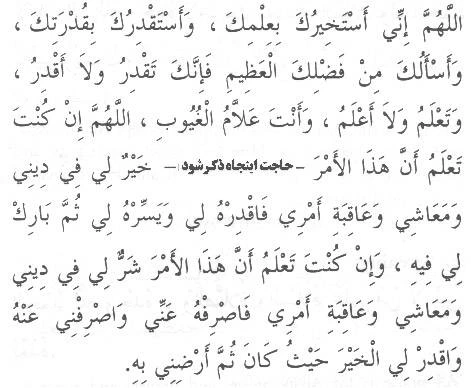 اللَّهُمَّ إِنِّي أَسْتَخِيرُكَ بِعِلْمِكَ ، وَأَسْتَقْدِرُكَ بِقُدْرَتِكَ ،
وَأَسْأَلُكَ مِنْ فَضْلِكَ الْعَظِيمِ فَإِنَّكَ تَقْدِرُ وَلاَ أَقْدِرُ ،
وَتَعْلَمُ وَلاَ أَعْلَمُ ، وَأَنْتَ عَلاَّمُ الْغُيُوبِ ، اللَّهُمَّ إِنْ كُنْتَ
تَعْلَمُ أَنَّ هَذَا الأَمْرَ - حاجت اینجاه ذکر شود - خَيْرٌ لِي فِي دِينِي
وَمَعَاشِي وَعَاقِبَةِ أَمْرِي فَاقْدِرْهُ لِي وَيَسِّرْهُ لِي ثُمَّ بَارِكْ
لِي فِيهِ ، وَإِنْ كُنْتَ تَعْلَمُ أَنَّ هَذَا الأَمْرَ شَرٌّ لِي فِي دِينِي
وَمَعَاشِي وَعَاقِبَةِ أَمْرِي فَاصْرِفْهُ عَنِّي وَاصْرِفْنِي عَنْهُ
وَاقْدِرْ لِي الْخَيْرَ حَيْثُ كَانَ ثُمَّ أَرْضِنِي بِهِ.